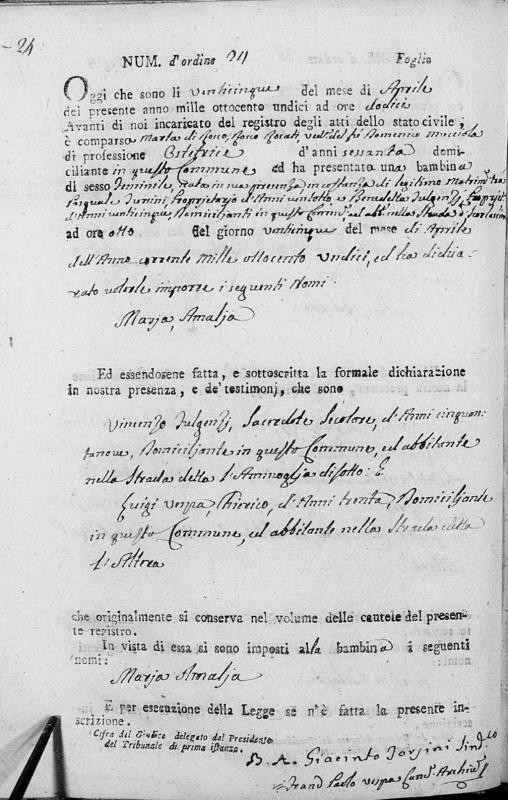 - 24
NUM. d'ordine 24 Foglio
Oggi che sono li venticinque del mese di Aprile
del presente anno mille ottocento undici ad ore dodici
Avanti di noi incaricato del registro degli atti dello stato civile,
è comparsa Maria di Rosati, Domenico
di professione Ostetrice d'anni sessanta domi-
ciliante in questo Commune ed ha presentato una bambina
di sesso feminile nata in sua presenza in costanza di legitimo
Pasquale Proprietario d'Anni ventotto e Benedetta Fulgenzj
d'Anni venticinque Domiciljanti in questo ed nella Strada
ad ore otto del giorno venticinque del mese di Aprile
dell'Anno corrente Mille ottocento Undici, ed ha dichia-
rato volerle imporre i seguenti Nomi
Marja, Amalja
Ed essendosene fatta, e sottoscritta la formale dichiarazione
in nostra presenza, e de' testimonj, che sono
Vincenzo Fulgenzj, Sacerdote Secolare, d'Anni cinquan-
tanove, Domiciljante in questo Commune, ed abbitante
nella Strada detta di sotto: E
Luigi Vespa, Chierico, d'Anni trenta, Domiciljante
in questo Commune, ed abbitante nella Strada detta
che originalmente si conserva nel volume delle cautele del presen-
te registro.
In vista di essa si sono imposti alla bambina i seguenti
nomi:
Marja Amalja
E per esecuzione della Legge se n'è fatta la presente in-
scrizione.
Cifra del Giudice delegato del Presidente
del Tribunale di prima istanza.
Giacinto Sind.co
Paolo Vespa